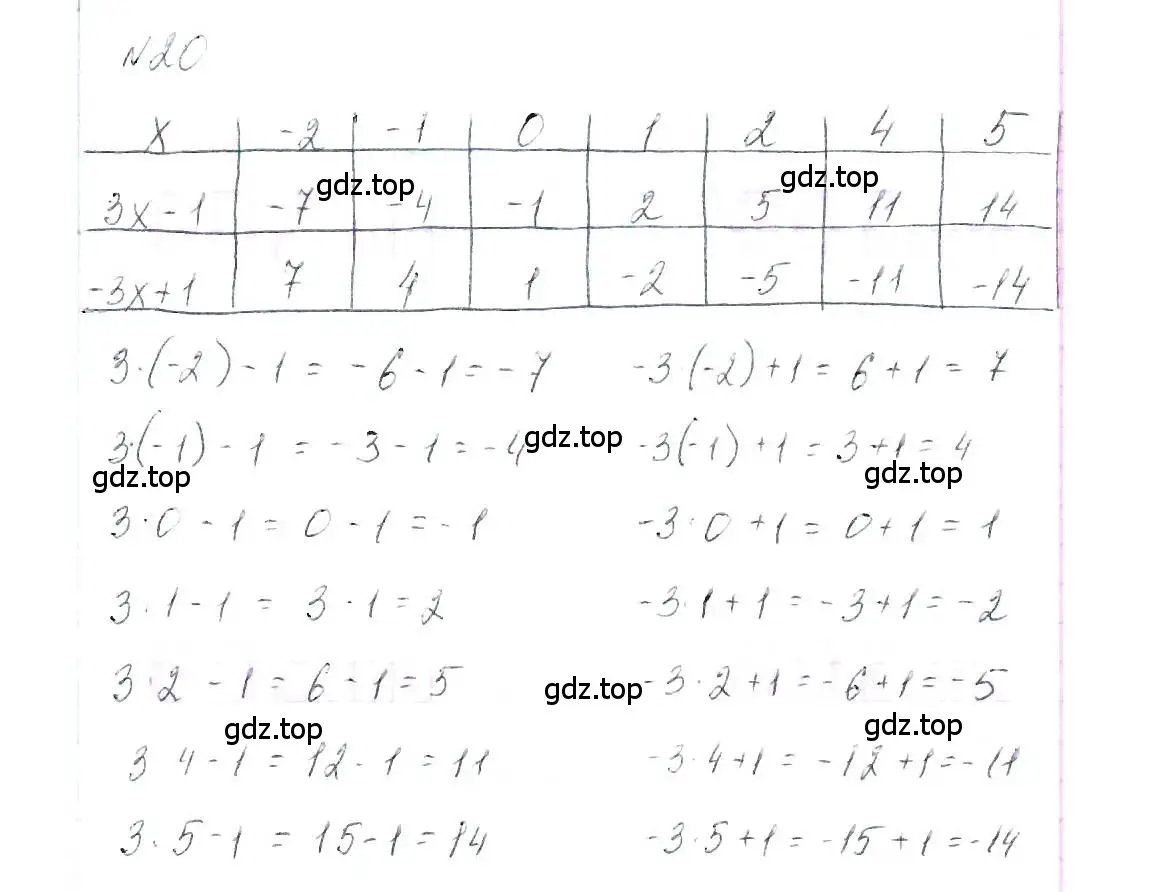 N20
x | -2 | -1 | 0 | 1 | 2 | 4 | 5
gdz.top gdz.top
3x-1 | -7 | -4 | -1 | 2 | 5 | 11 | 14
-3x+1 | 7 | 4 | 1 | -2 | -5 | -11 | -14
3·(-2)-1 = -6-1 = -7 -3·(-2)+1 = 6+1 = 7
3·(-1)-1 = -3-1 = -4 gdz.top -3(-1)+1 = 3+1 = 4
gdz.top gdz.top
3·0-1 = 0-1 = -1 -3·0+1 = 0+1 = 1
3·1-1 = 3·1 = 2 -3·1+1 = -3+1 = -2
3·2-1 = 6-1 = 5 gdz.top -3·2+1 = -6+1 = -5
gdz.top gdz.top
3 4-1 = 12-1 = 11 -3·4+1 = -12+1 = -11
3·5-1 = 15-1 = 14 -3·5+1 = -15+1 = -14